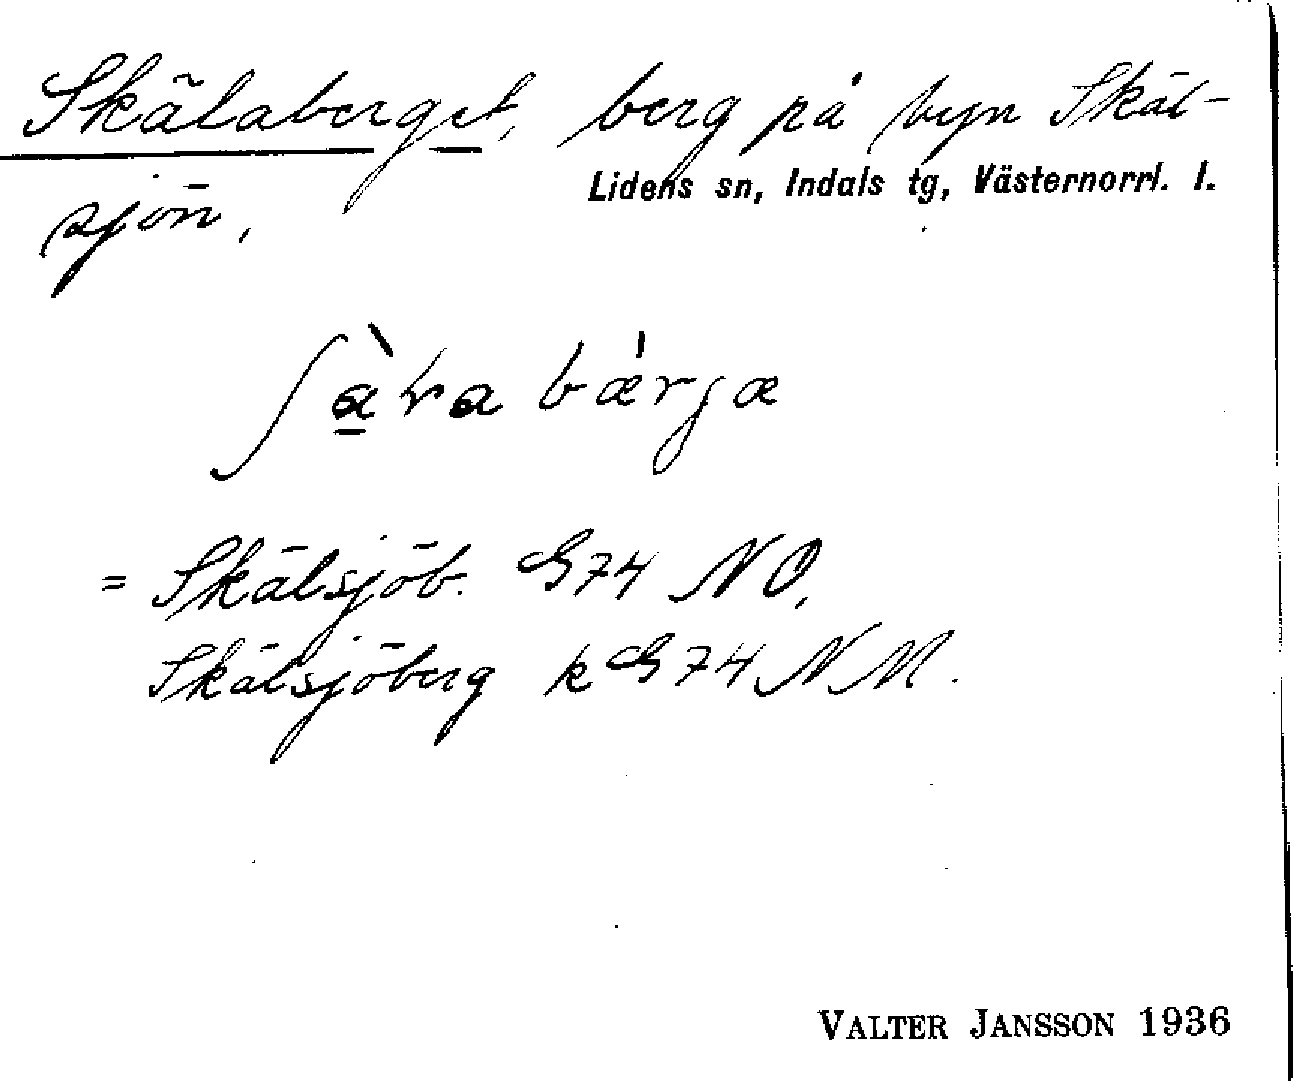 Skälaberget, berg på byn Skäl-
Lidens sn, Indals tg, Västernorrl. l.
sjön,
= Skälsjöb. G74 NO,
Skälsjöberg k G74 NM.
VALTER JANSSON 1936